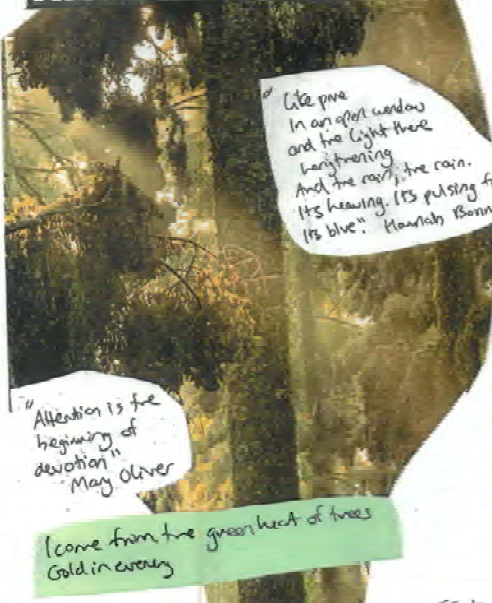 " Like pine
In an open window
and the light there
heightening
And the rain, the rain.
It's heaving. It's pulsing
It's blue". Hannah Bonn
"Attention is the
beginning of
devotion"
Mary Oliver
I come from the green heat of trees
Gold in every